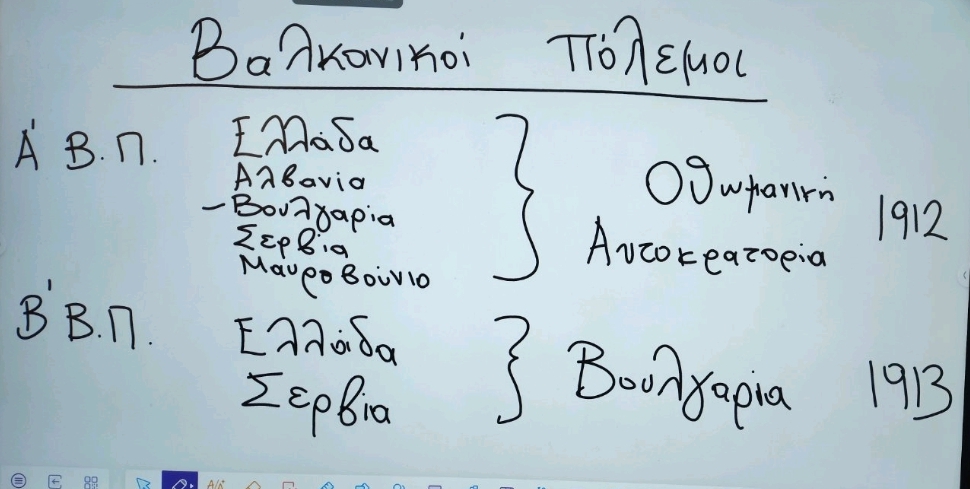 Βαλκανικοί Πόλεμοι
Α' Β.Π. Ελλάδα
Αλβανία
- Βουλγαρία
Σερβία
Μαυροβούνιο
Οθωμανική
Αυτοκρατορία
1912
Β' Β.Π. Ελλάδα
Σερβία
Βουλγαρία 1913